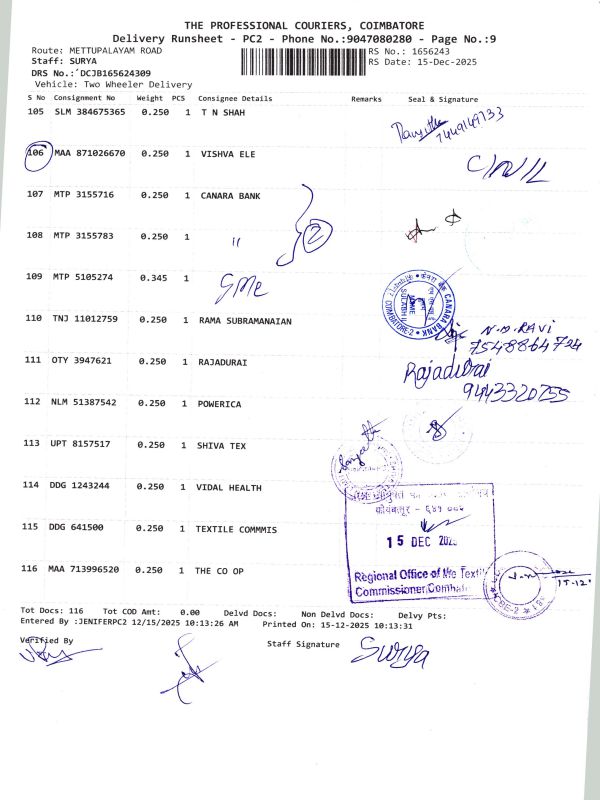 THE PROFESSIONAL COURIERS, COIMBATORE
Delivery Runsheet - PC2 - Phone No.:9047080280 - Page No.:9
Route: METTUPALAYAM ROAD
RS No.: 1656243
Staff: SURYA
RS Date: 15-Dec-2025
DRS No.: DCJB165624309
Vehicle: Two Wheeler Delivery
S No Consignment No Weight PCS Consignee Details Remarks Seal & Signature
105 SLM 384675365 0.250 1 T N SHAH
7449149733
106 MAA 871026670 0.250 1 VISHVA ELE
107 MTP 3155716 0.250 1 CANARA BANK
108 MTP 3155783 0.250 1 "
2
109 MTP 5105274 0.345 1
CANARA BANK
COIMBATORE-2
110 TNJ 11012759 0.250 1 RAMA SUBRAMANAIAN
N.D.RAVI
7548864724
111 OTY 3947621 0.250 1 RAJADURAI
Rajadurai
9443320755
112 NLM 51387542 0.250 1 POWERICA
113 UPT 8157517 0.250 1 SHIVA TEX
114 DDG 1243244 0.250 1 VIDAL HEALTH
कोयंबत्तूर - ६४१ ००२
115 DDG 641500 0.250 1 TEXTILE COMMMIS
15 DEC 2025
116 MAA 713996520 0.250 1 THE CO OP
Regional Office of the Textile
Commissioner, Coimbatore
CBE-2
15-12
Tot Docs: 116 Tot COD Amt: 0.00 Delvd Docs: Non Delvd Docs: Delvy Pts:
Entered By :JENIFERPC2 12/15/2025 10:13:26 AM Printed On: 15-12-2025 10:13:31
Verified By
Staff Signature
Surya